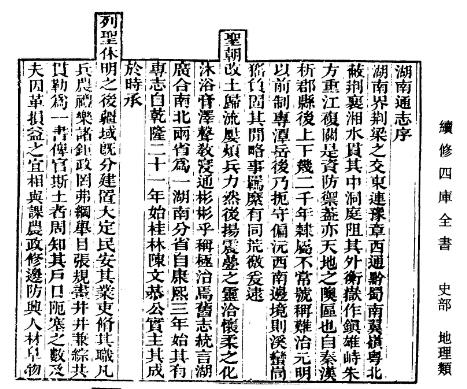 續修四庫全書 史部 地理類
湖南通志序
湖南界荊梁之交東連豫章西通黔蜀南翼嶺粵北
蔽荊襄湘水貫其中洞庭阻其外衡嶽作鎮雄峙朱
方重江複關是資防禦蓋亦天地之隩區也自秦漢
析郡縣後上下幾二千年隸屬不常號稱難治元明
以前制專潭岳後乃扼守偏沅西南邊境則溪蠻峝
猺負固其閒略事羈縻有同荒徼爰逮
聖朝改土歸流屢煩兵力然後揚震疊之靈洽懷柔之化
沐浴膏澤聲教寖通彬彬乎稱極治焉舊志統言湖
廣合南北兩省爲一湖南分省自康熙三年始其有
專志自乾隆二十一年始桂林陳文恭公實主其成
於時承
列聖休明之後疆域既分建置大定民安其業吏脩其職凡
兵農禮樂諸鉅政罔弗綱舉目張規畫井井兼綜共
貫勒爲一書俾官斯土者周知其戶口阨塞之數及
夫因革損益之宜相與課農政修邊防興人材阜物